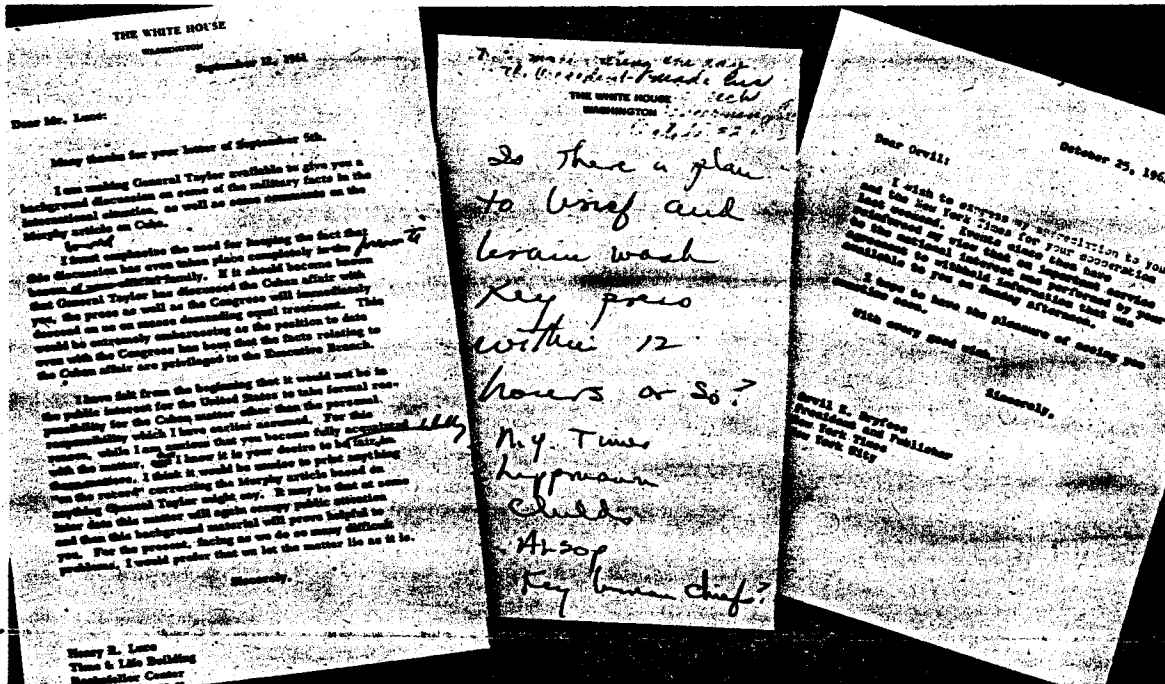 THE WHITE HOUSE
WASHINGTON
September 12, 1961
Dear Mr. Luce:
Many thanks for your letter of September 5th.
I am making General Taylor available to give you a
background discussion on some of the military facts in the
international situation, as well as some comments on the
Murphy article on Cuba.
I must emphasize the need for keeping the fact that
this discussion has even taken place completely in the
bosom of your official family. If it should become known
that General Taylor has discussed the Cuban affair with
you, the press as well as the Congress will immediately
descend on us en masse demanding equal treatment. This
would be extremely embarrassing as the position to date
even with the Congress has been that the facts relating to
the Cuban affair are privileged to the Executive Branch.
I have felt from the beginning that it would not be in
the public interest for the United States to take formal res-
ponsibility for the Cuban matter other than the personal
responsibility which I have earlier assumed. For this
reason, while I am anxious that you become fully acquainted
with the matter, I know it is your desire to be fair in
"on the record" correcting the Murphy article based on
anything General Taylor might say. It may be that at some
later date this matter will again occupy public attention
and then this background material will prove helpful to
you. For the present, facing as we do so many difficult
problems, I would prefer that we let the matter lie as it is.
Sincerely,
Henry R. Luce
Time & Life Building
Rockefeller Center
the day
The President made his
THE WHITE HOUSE
WASHINGTON
Is there a plan
to brief and
brain wash
key press
within 12
hours or so?
N.Y. Times
Lippmann
Childs
Alsop
Key bureau chiefs?
October 25, 196
Dear Orvil:
I wish to express my appreciation to you
and the New York Times for your cooperation
last weekend. Events since then have
reinforced my view that an important service
to the national interest was performed by your
agreement to withhold information that was
available to you on Sunday afternoon.
I hope to have the pleasure of seeing you
sometime soon.
With every good wish.
Sincerely,
Orvil E. Dryfoos
President and Publisher
New York Times
New York City